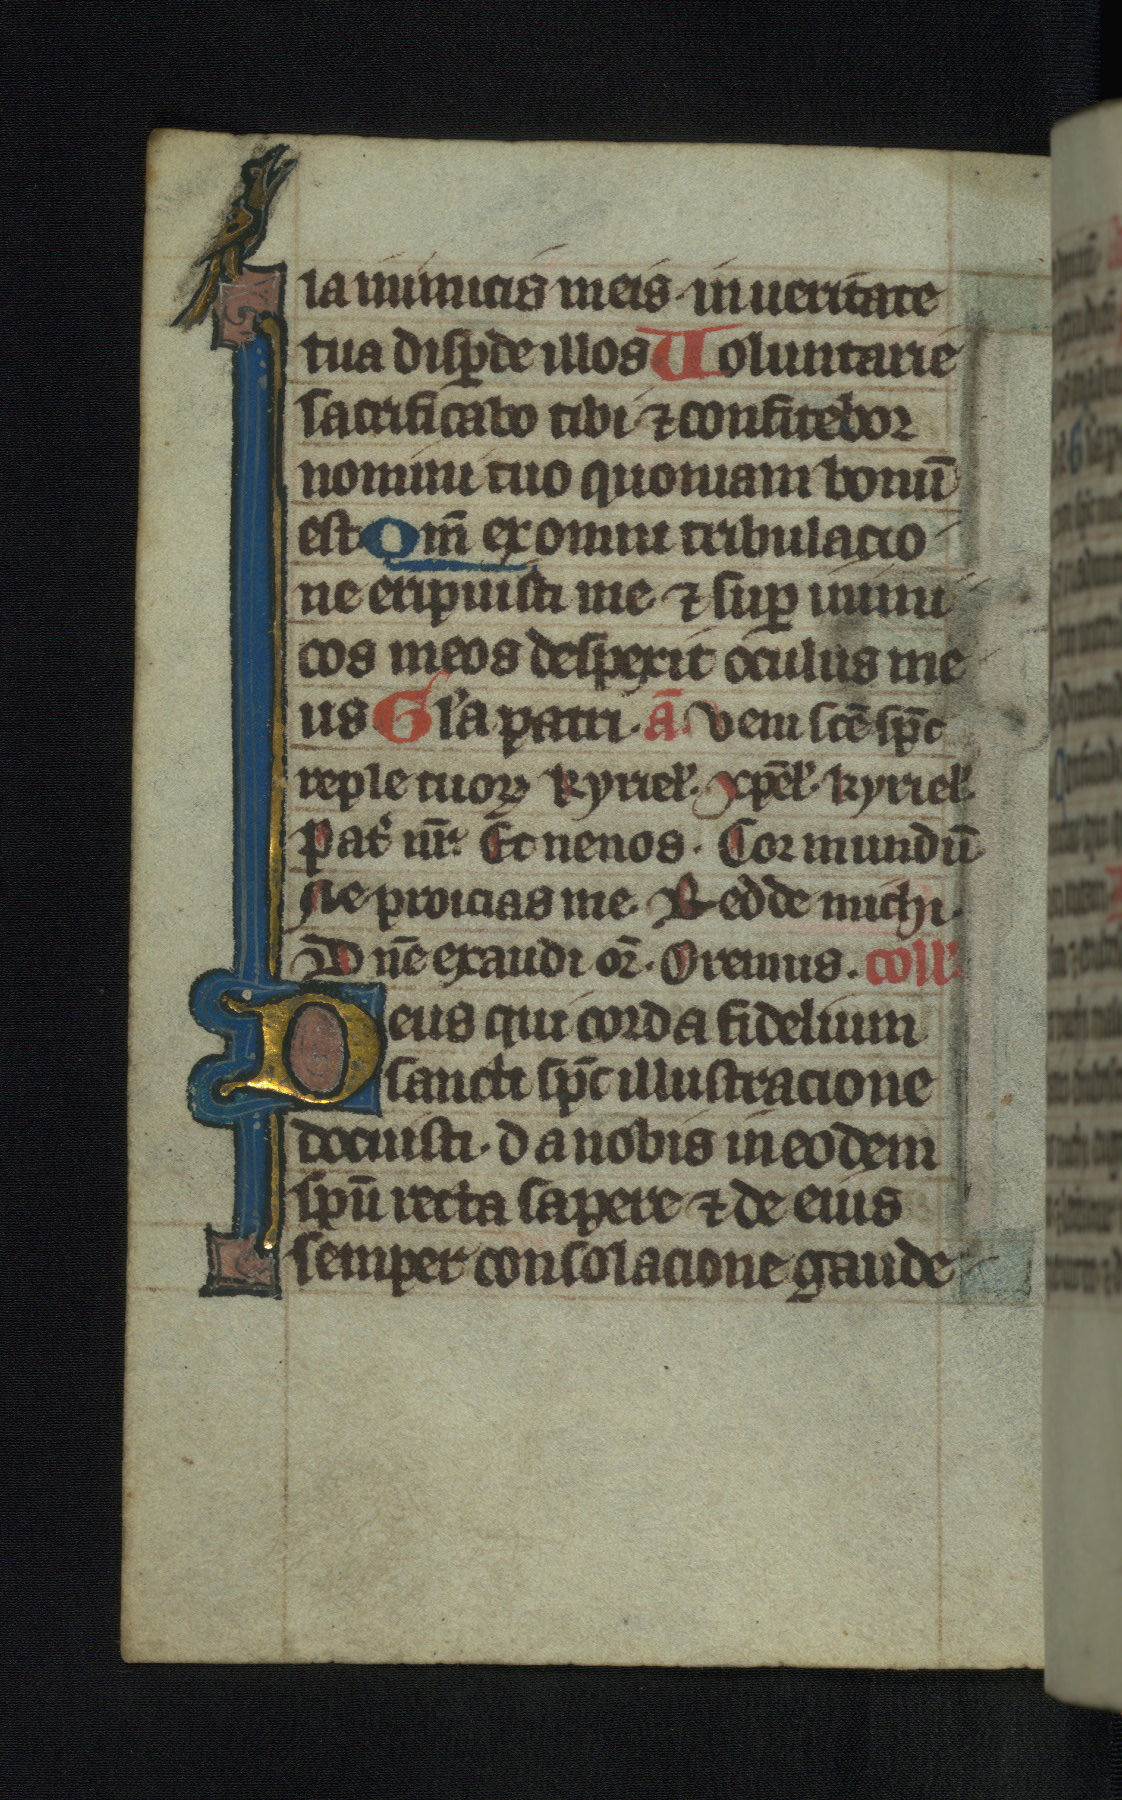 la inimicis meis in ueritate
tua disꝑde illos Uoluntarie
sacrificabo tibi ⁊ confitebor
nomini tuo quoniam bonū
est Qm̄ ex omni tribulacio
ne eripuisti me ⁊ suꝑ inimi
cos meos despexit oculus me
us Gl'a patri. a̅. Veni sc̄e sp̄c
reple tuoꝝ Kyriel'. xp̄el'. kyriel'.
Pat' nr̄. Et nenos. Cor mundū
Ne proicias me. Redde michi.
Dn̄e exaudi or̄. Oremus. coll'.
Deus qui corda fidelium
sancti sp̄c illustracione
docuisti. da nobis in eodem
spū recta sapere ⁊ de eius
semper consolacione gaude